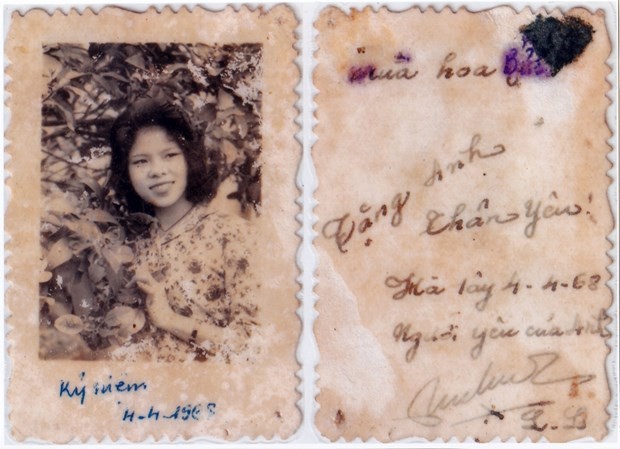 Kỷ niệm
4-4-1968
mùa hoa
Anh
Tặng Thân Yêu!
Hà Tây 4-4-68
Người yêu của Anh
L.L